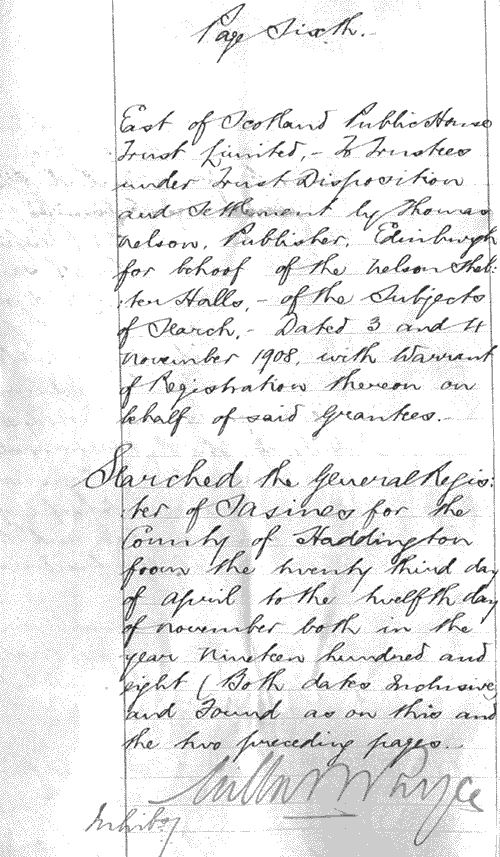 Page Sixth.-
East of Scotland Public House
Trust Limited,- To Trustees
under Trust Disposition
and Settlement by Thomas
Nelson, Publisher, Edinburgh
for behoof of the Nelson Shel:
:ter Halls,- of the Subjects
of Search,- Dated 3 and 4
November 1908, with Warrant
of Registration thereon on
behalf of said Grantees.-
Searched the General Regis:
:ter of Sasines for the
County of Haddington
from the twenty third day
of April to the twelfth day
of November both in the
year Nineteen hundred and
eight (Both dates Inclusive)
and Found as on this and
the two preceding pages.-